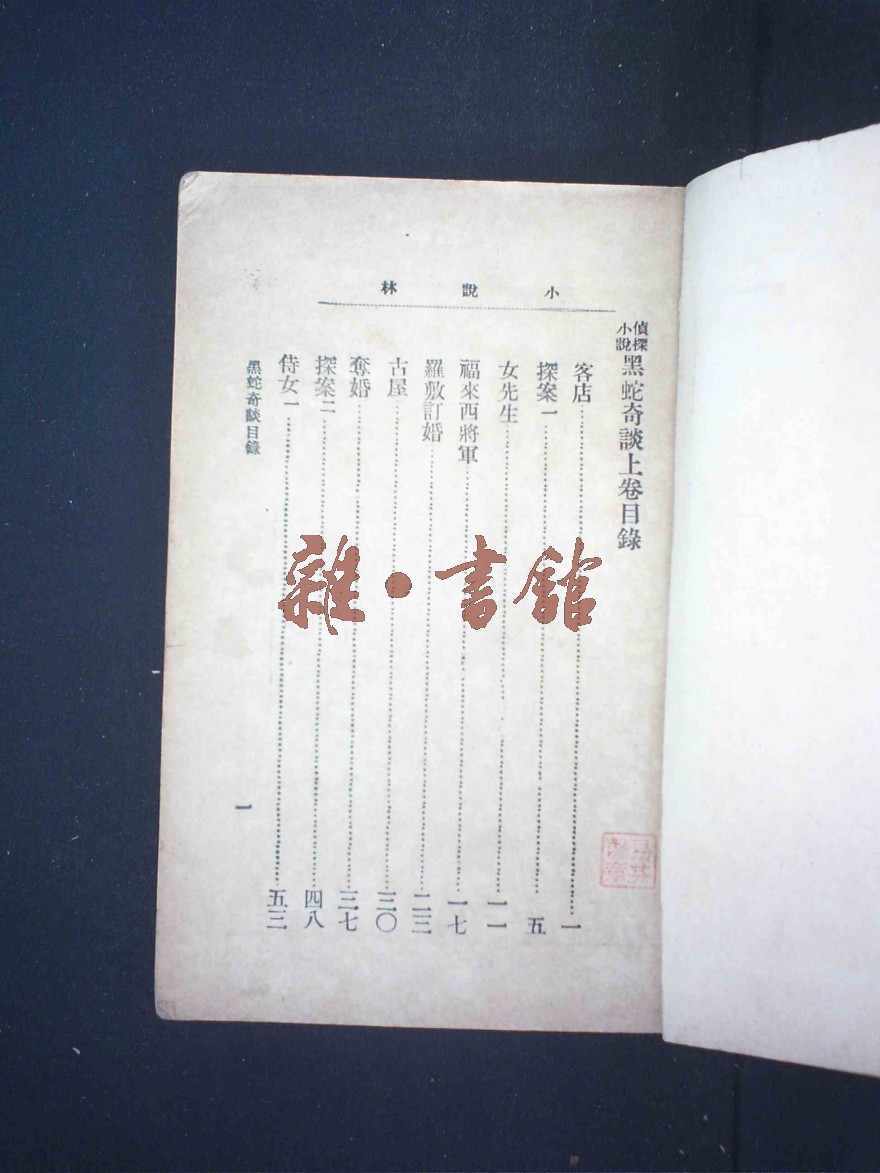 小說林
偵探小說 黑蛇奇談上卷目錄
客店……一
探案一……五
女先生……一一
福來西將軍……一七
羅敷訂婚……二三
古屋……三〇
奪婚……三七
探案二……四八
侍女一……五三
黑蛇奇談目錄
一
雜·書館